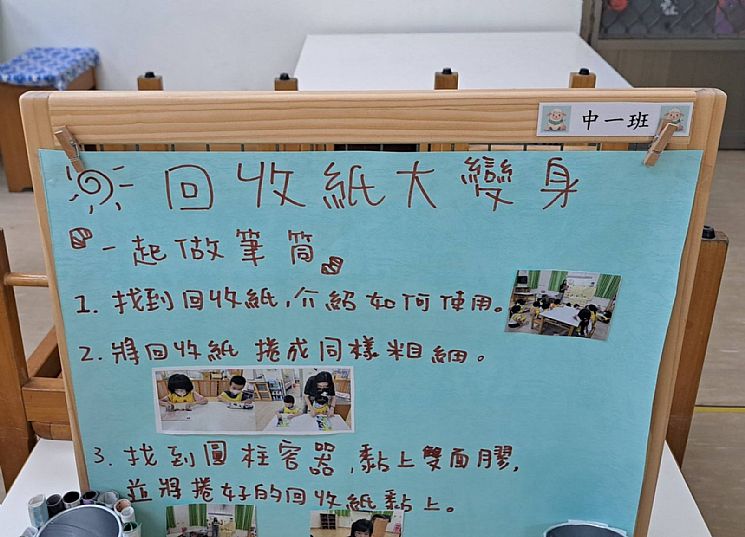 中一班
回收紙大變身
一起做筆筒
1. 找到回收紙,介紹如何使用。
2. 將回收紙捲成同樣粗細。
3. 找到圓柱容器,黏上雙面膠,
並將捲好的回收紙黏上。